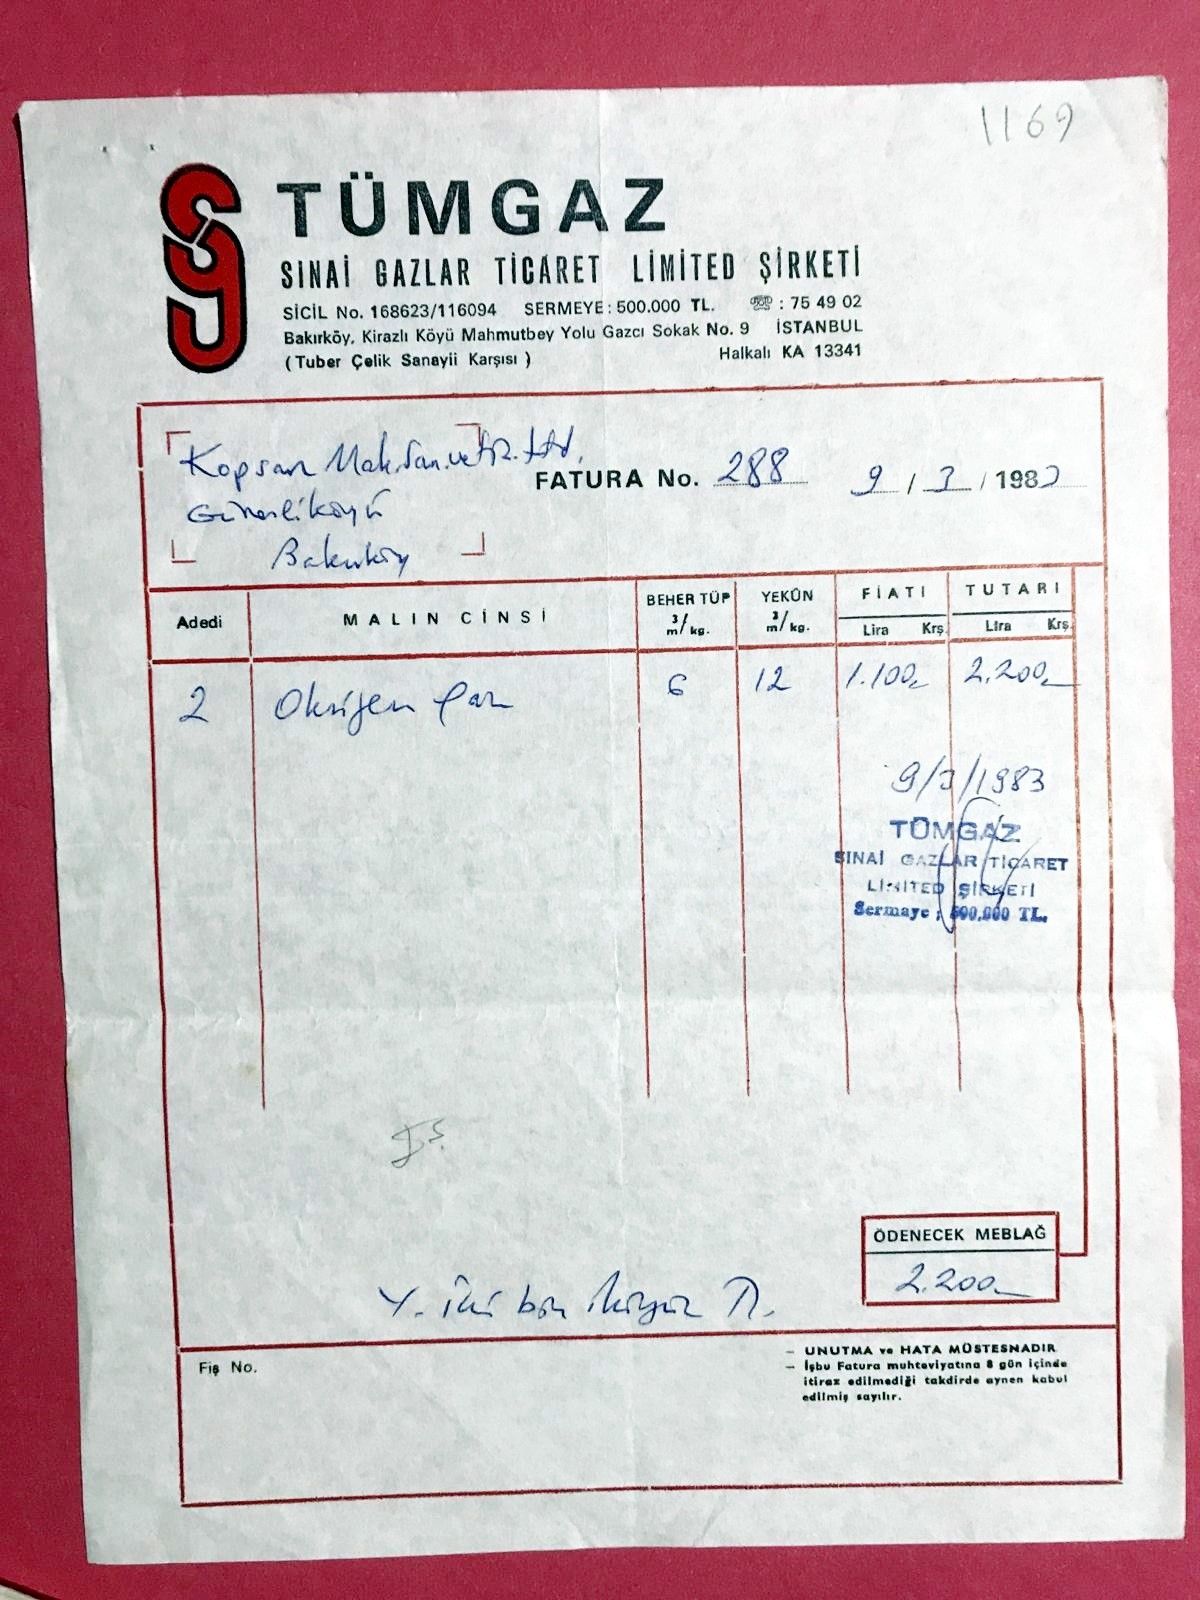 1169
TÜMGAZ
SINAİ GAZLAR TİCARET LİMİTED ŞİRKETİ
SİCİL No. 168623/116094 SERMEYE: 500.000 TL. ☏ : 75 49 02
Bakırköy, Kirazlı Köyü Mahmutbey Yolu Gazcı Sokak No. 9 İSTANBUL
(Tuber Çelik Sanayii Karşısı) Halkalı KA 13341
Kopsan Mak. San. ve Tic. Ltd.
FATURA No. 288 9 / 3 / 1983
Güneşliköyü
Bakırköy
Adedi MALIN CİNSİ BEHER TÜP m³/kg. YEKÜN m³/kg. FİATI TUTARI
Lira Krş. Lira Krş.
2 Oksijen Gazı 6 12 1.100,- 2.200,-
9/3/1983
TÜMGAZ
SINAİ GAZLAR TİCARET
LİMİTED ŞİRKETİ
Sermaye : 500.000 TL.
ÖDENECEK MEBLAĞ
2.200,-
Y. İki bin ikiyüz TL.
Fiş No.
— UNUTMA ve HATA MÜSTESNADIR
— İşbu Fatura muhteviyatına 8 gün içinde
itiraz edilmediği takdirde aynen kabul
edilmiş sayılır.